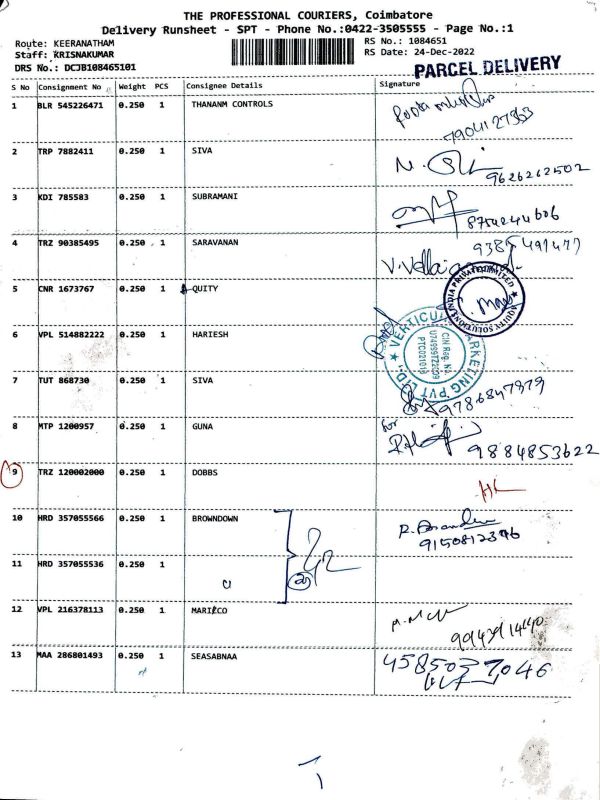 THE PROFESSIONAL COURIERS, Coimbatore
Delivery Runsheet - SPT - Phone No.:0422-3505555 - Page No.:1
Route: KEERANATHAM
RS No.: 1084651
Staff: KRISNAKUMAR
RS Date: 24-Dec-2022
DRS No.: DCJB108465101
PARCEL DELIVERY
S No Consignment No Weight PCS Consignee Details Signature
1 BLR 545226471 0.250 1 THANANM CONTROLS
7904127363
2 TRP 7882411 0.250 1 SIVA
9626262502
3 KDI 785583 0.250 1 SUBRAMANI
8754244606
4 TRZ 90385495 0.250 1 SARAVANAN
V. Vellai
5 CNR 1673767 0.250 1 QUITY
EQUITY SOLUTIONS INDIA PRIVATE LIMITED
6 VPL 514882222 0.250 1 HARIESH
MARKETING PVT LTD.
CIN Reg. No.
7 TUT 868730 0.250 1 SIVA
9786847979
8 MTP 1200957 0.250 1 GUNA
for
9884853622
9 TRZ 120002000 0.250 1 DOBBS
10 HRD 357055566 0.250 1 BROWNDOWN
9150812376
11 HRD 357055536 0.250 1
12 VPL 216378113 0.250 1 MARICO
13 MAA 286801493 0.250 1 SEASABNAA
4585037046